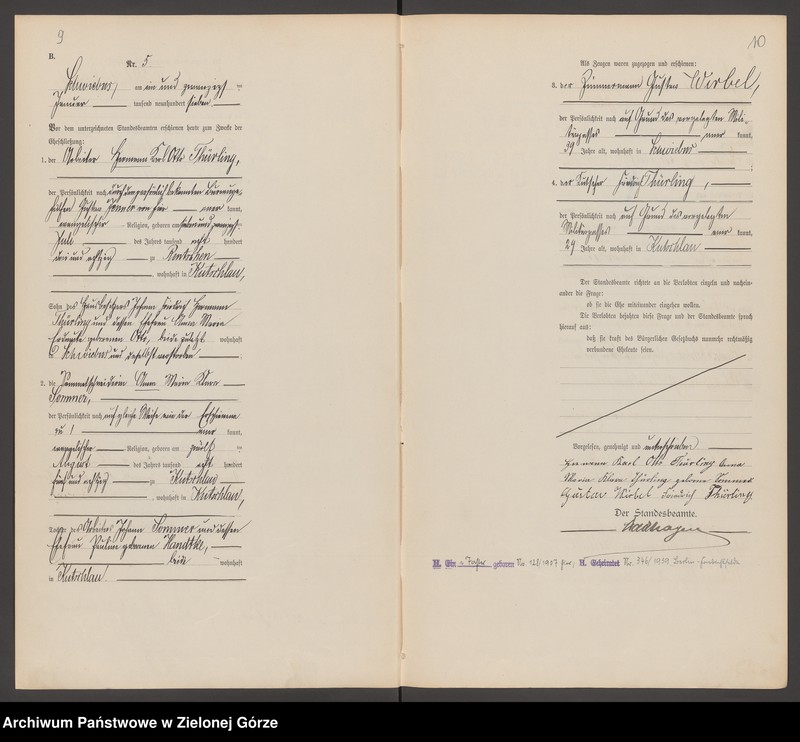 9
B.
Nr. 5
Schwiebus, am ein und zwanzigsten
Januar tausend neunhundert sieben
Vor dem unterzeichneten Standesbeamten erschienen heute zum Zwecke der
Eheschließung:
1. der Arbeiter Hermann Karl Otto Thürling,
der Persönlichkeit nach durch den persönlich bekannten
Gustav von hier kannt,
evangelischer Religion, geboren am sieben und zwanzigsten
Juli des Jahres tausend acht hundert
drei und achtzig zu Rentschen
, wohnhaft in Kutschlau,
Sohn des Hausbesitzers Johann Friedrich Hermann
Thürling und dessen Ehefrau Anna Maria
geborenen Otto, beide zuletzt wohnhaft
in Schwiebus und daselbst verstorben ;
2. die Anna Maria Klara
Sommer,
der Persönlichkeit nach auf gleiche Weise wie der Erschienene
zu 1 kannt,
evangelischer Religion, geboren am zwölften
August des Jahres tausend acht hundert
fünf und achtzig zu Kutschlau
, wohnhaft in Kutschlau,
Tochter des Arbeiters Johann Sommer und dessen
Ehefrau Pauline geborenen Handtke,
beide wohnhaft
in Kutschlau
10
Als Zeugen waren zugezogen und erschienen:
3. der Zimmermann Gustav Wirbel,
der Persönlichkeit nach auf Grund des vorgelegten Mili-
tärpasses kannt,
39 Jahre alt, wohnhaft in Schwiebus
;
4. der Kutscher Friedrich Thürling,
der Persönlichkeit nach auf Grund des vorgelegten
Militärpasses kannt,
29 Jahre alt, wohnhaft in Kutschlau
Der Standesbeamte richtete an die Verlobten einzeln und nachein-
ander die Frage:
ob sie die Ehe miteinander eingehen wollen.
Die Verlobten bejahten diese Frage und der Standesbeamte sprach
hierauf aus:
daß sie kraft des Bürgerlichen Gesetzbuchs nunmehr rechtmäßig
verbundene Eheleute seien.
Vorgelesen, genehmigt und unterschrieben
Hermann Karl Otto Thürling Anna
Maria Klara Thürling geborene Sommer
Gustav Wirbel Friedrich Thürling
Der Standesbeamte.
geboren No 128/1907 hier; Geheiratet Nr. 346/1939 Berlin-
Archiwum Państwowe w Zielonej Górze